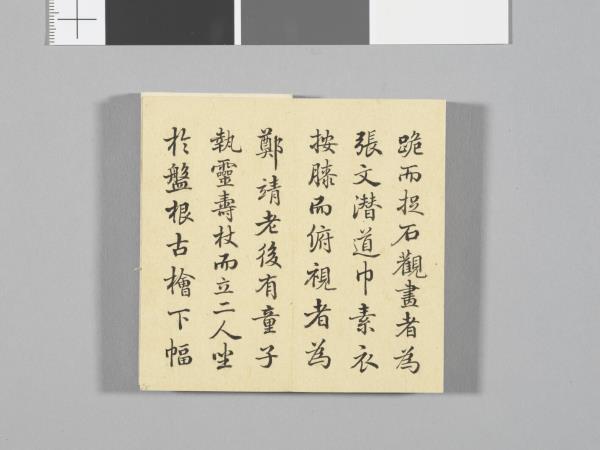 跪而捉石觀畫者為
張文潛道巾素衣
按膝而俯視者為
鄭靖老後有童子
執靈壽杖而立二人坐
於盤根古檜下幅